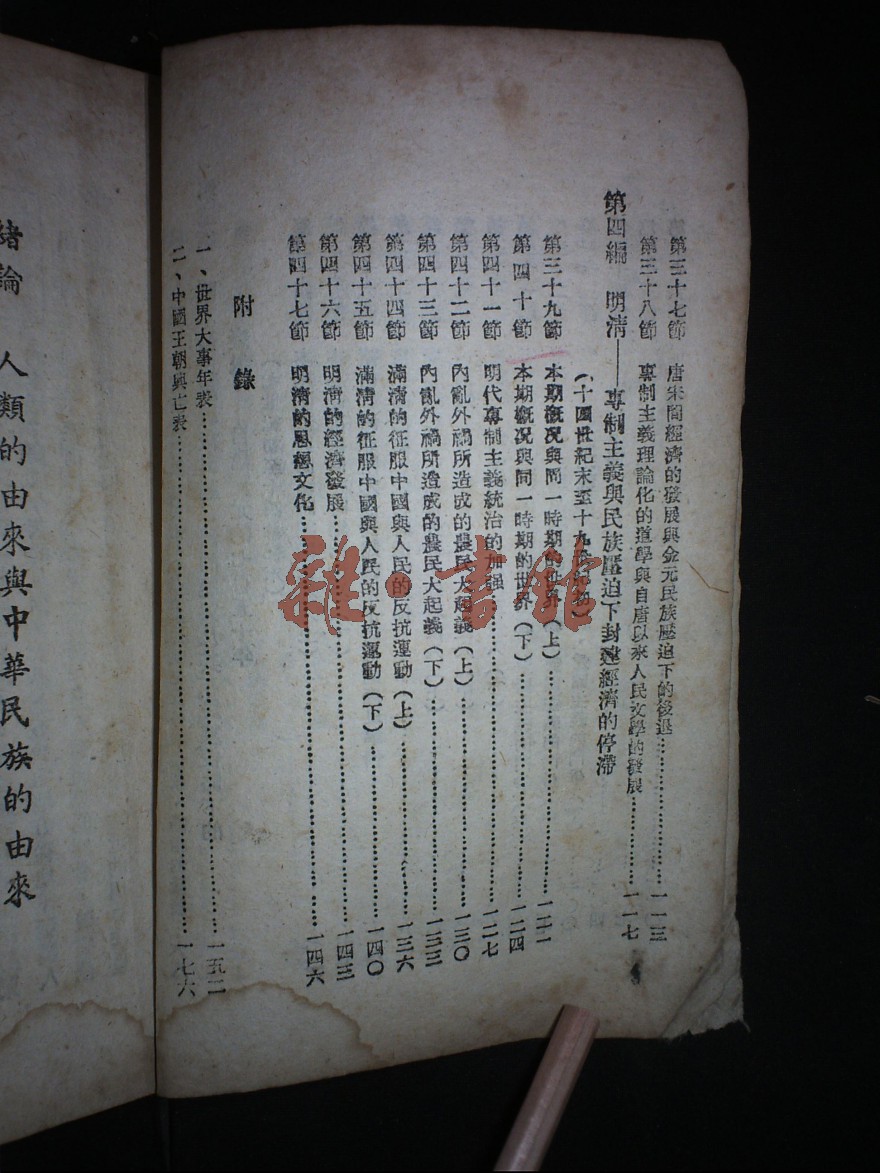 第三十七節　唐宋間經濟的發展與金元民族壓迫下的後退……………………一一三
第三十八節　專制主義理論化的道學與自唐以來人民文學的發展…………一一七
第四編　明清——專制主義與民族壓迫下封建經濟的停滯
（十四世紀末至十九世紀初）
第三十九節　本期概況與同一時期的世界（上）……………………一二一
第四十節　本期概況與同一時期的世界（下）……………………一二四
第四十一節　明代專制主義統治的加强……………………一二七
第四十二節　內亂外禍所造成的農民大起義（上）……………………一三〇
第四十三節　內亂外禍所造成的農民大起義（下）……………………一三三
第四十四節　滿清的征服中國與人民的反抗運動（上）……………………一三六
第四十五節　滿清的征服中國與人民的反抗運動（下）……………………一四〇
第四十六節　明清的經濟發展……………………一四三
第四十七節　明清的思想文化……………………一四六
附錄
一、世界大事年表……………………一五二
二、中國王朝興亡表……………………一七六
緒論　人類的由來與中華民族的由來
雜·書館